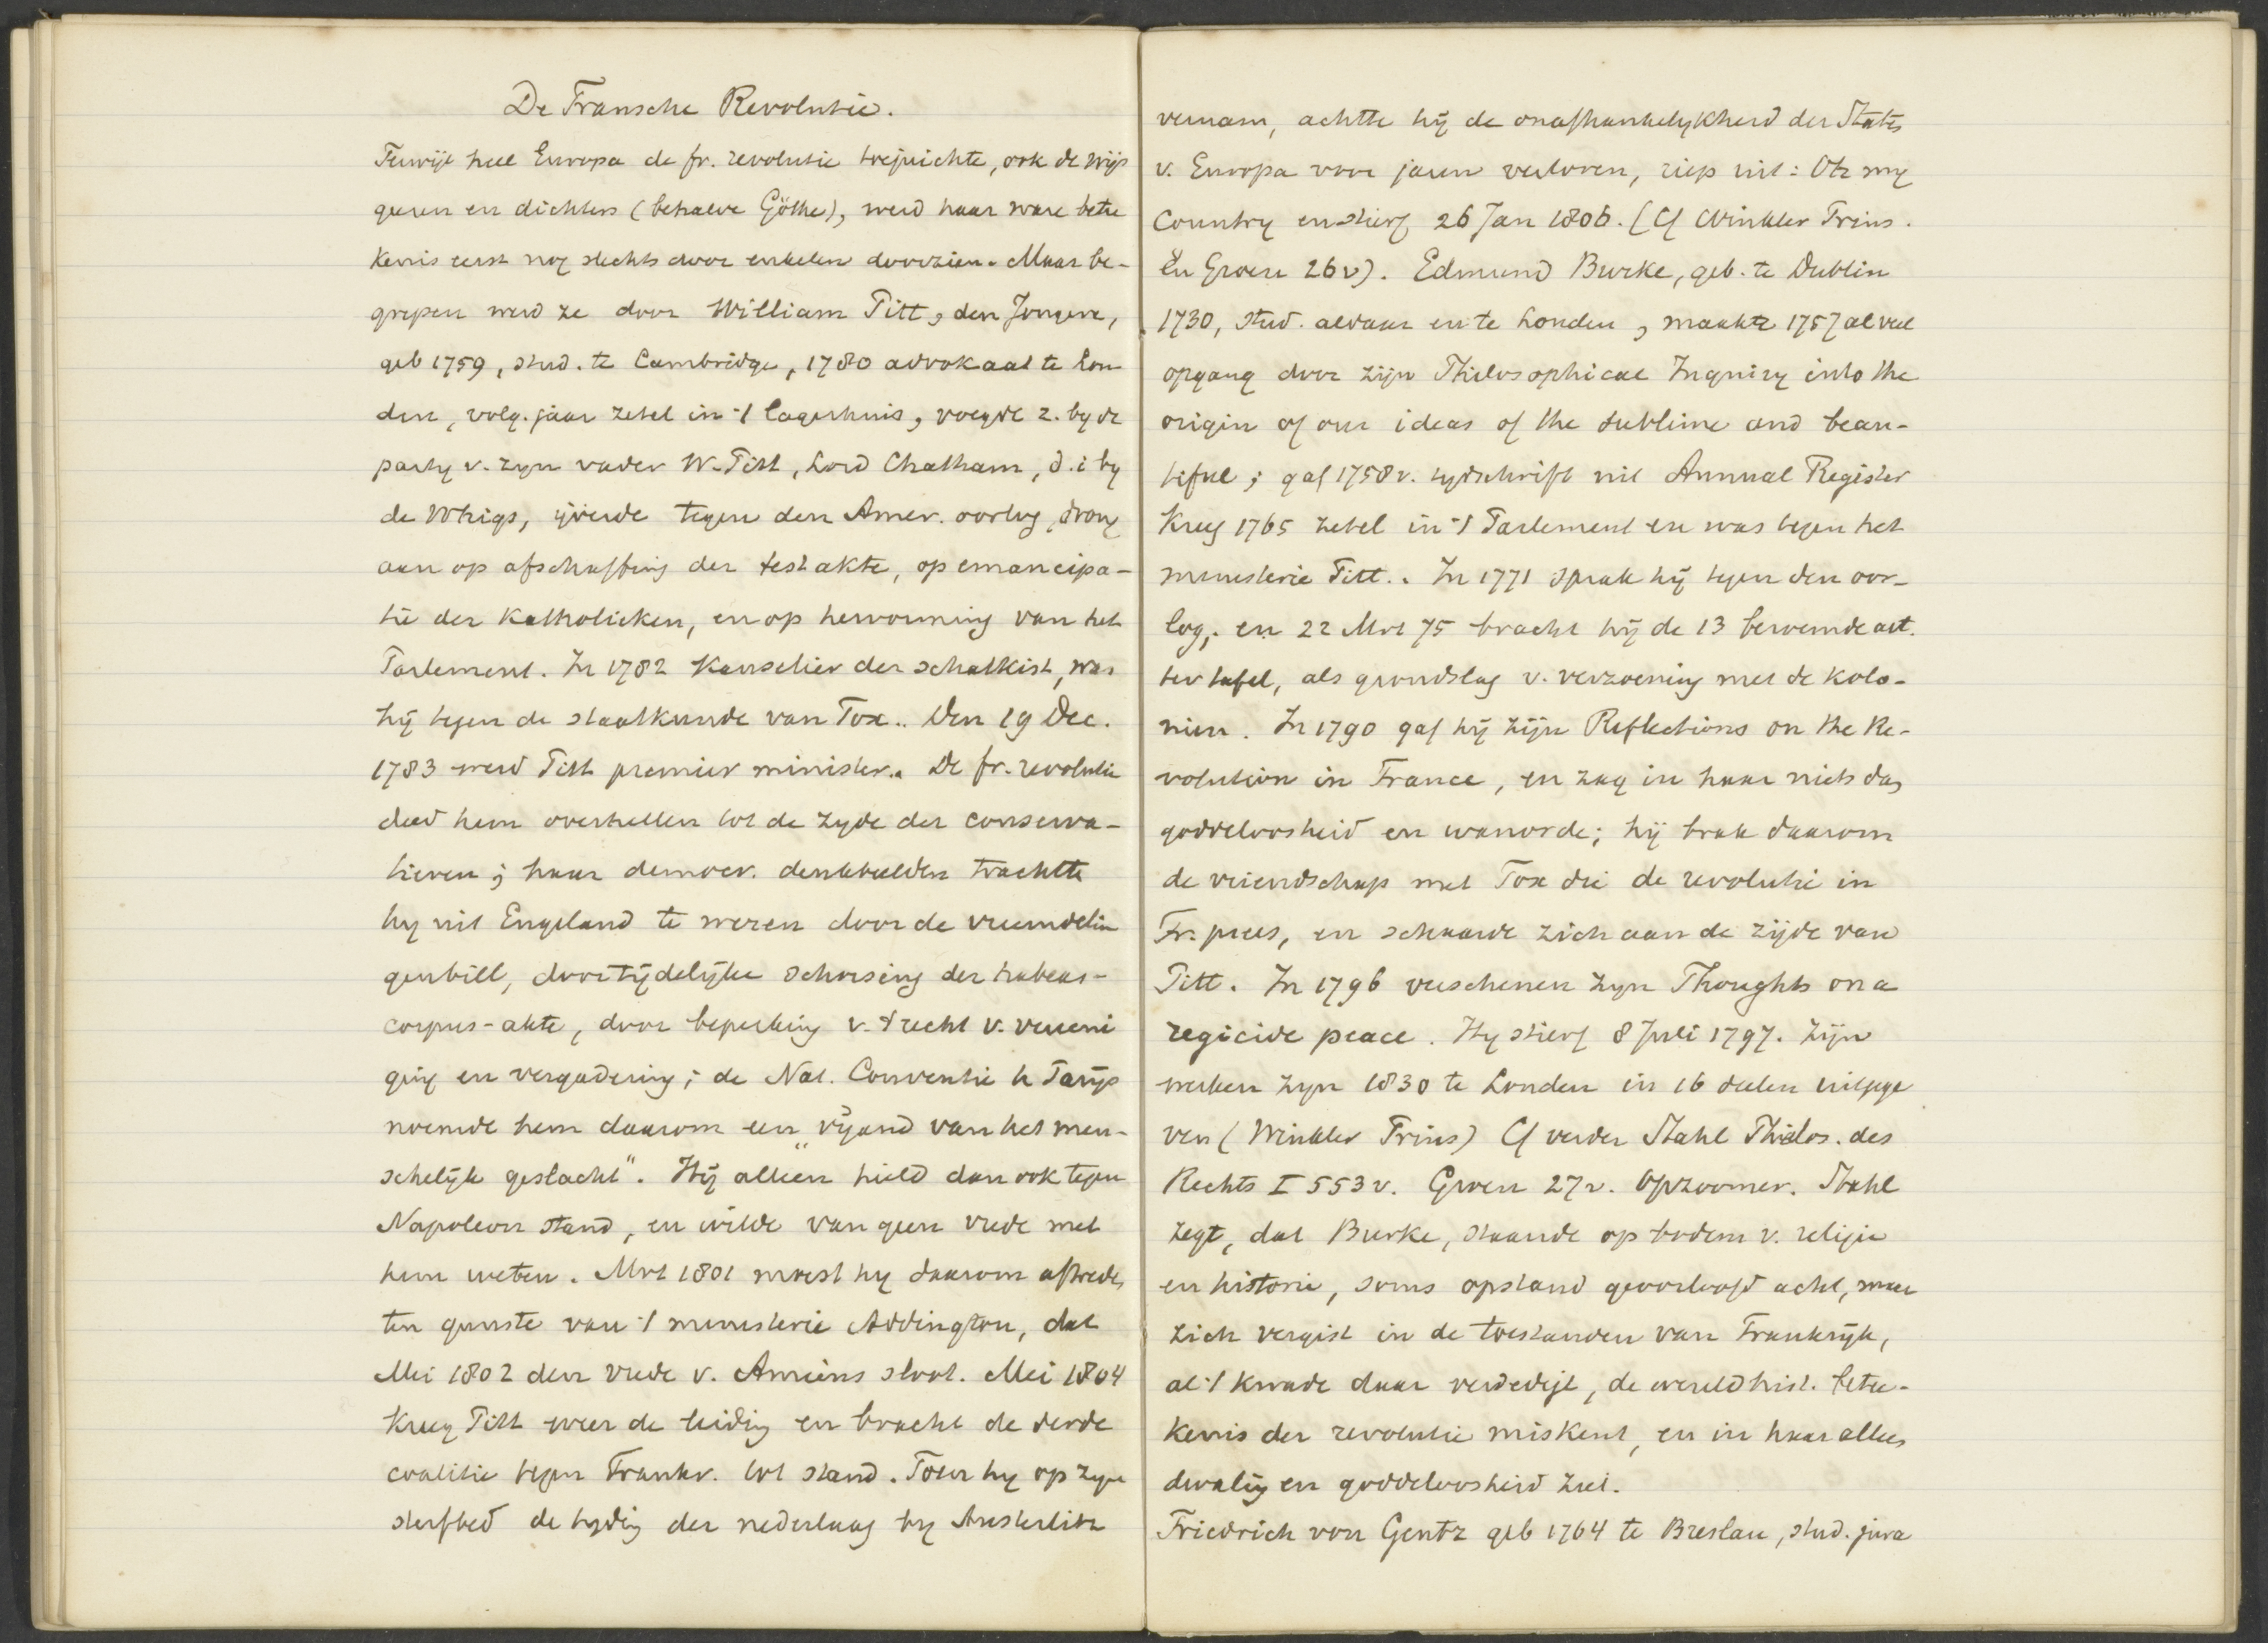 De Fransche Revolutie.
Terwijl heel Europa de fr. revolutie toejuichte, ook de wijs
geeren en dichters (behalve Göthe), werd haar ware betee
kenis eerst nog slechts door enkelen doorzien. Maar be-
grepen werd ze door William Pitt, den Jongere,
geb 1759, stud. te Cambridge, 1780 advokaat te Lon
den, volg. jaar zetel in 't Lagerhuis, voegde z. by de
party v. zyn vader W. Pitt, Lord Chatham, d.i by
de Whigs, ijverde tegen den Amer. oorlog, drong
aan op afschaffing der testakte, op emancipa-
tie der Katholieken, en op hervorming van het
Parlement. In 1782 Kanselier der schatkist, was
hij tegen de staatkunde van Fox.. Den 19 Dec.
1783 werd Pitt premier minister. De fr. revolutie
deed hem overhellen tot de zyde der conserva-
tieven; haar democr. denkbeelden trachtte
hy uit Engeland te weren door de vreemdelin
genbill, door tijdelijke schorsing der habeas-
corpus-akte, door beperking v. 't recht v. vereeni
ging en vergadering; de Nat. Conventie te Parijs
noemde hem daarom een „vijand van het men-
schelijk geslacht". Hij alleen hield dan ook tegen
Napoleon stand, en wilde van geen vrede met
hem weten. Mrt 1801 moest hy daarom aftreden
ten gunste van 't ministerie Addington, dat
Mei 1802 den vrede v. Amiens sloot. Mei 1804
kreeg Pitt weer de leiding en bracht de derde
coalitie tegen Frankr. tot stand. Toen hy op zyn
sterfbed de tyding der nederlaag by Austerlitz
vernam, achtte hij de onafhankelykheid der Staten
v. Europa voor jaren verloren, riep uit: Oh my
Country en stierf 26 Jan 1806. (Cf Winkler Prins.
En Groen 26v). Edmund Burke, geb. te Dublin
1730, stud. aldaar en te Londen, maakte 1757 al veel
opgang door zijn Philosophical Inquiry into the
origin of our ideas of the sublime and beau-
tiful; gaf 1758 v. tydschrift uit Annual Register
Kreeg 1765 zetel in 't Parlement en was tegen het
ministerie Pitt.. In 1771 sprak hij tegen den oor-
log, en 22 Mrt 75 bracht hij de 13 beroemde art.
ter tafel, als grondslag v. verzoening met de kolo-
niën. In 1790 gaf hij zijn Reflections on the Re-
volution in France, en zag in haar niets dan
goddeloosheid en wanorde; hij brak daarom
de vriendschap met Fox die de revolutie in
Fr. prees, en schaarde zich aan de zijde van
Pitt. In 1796 verschenen zyn Thoughts on a
regicide peace. Hy stierf 8 Juli 1797. Zijn
werken zyn 1830 te Londen in 16 deelen uitgege
ven (Winkler Prins) Cf verder Stahl Philos. des
Rechts I 553 v. Groen 27v. Opzoomer. Stahl
zegt, dat Burke, staande op bodem v. religie
en historie, soms opstand geoorloofd acht, maar
zich vergist in de toestanden van Frankrijk,
al 't kwade daar verdedigt, de wereldhist. betee-
kenis der revolutie miskent, en in haar alleen
dwaling en goddeloosheid ziet.
Friedrich von Gentz geb 1764 te Breslau, stud. jura